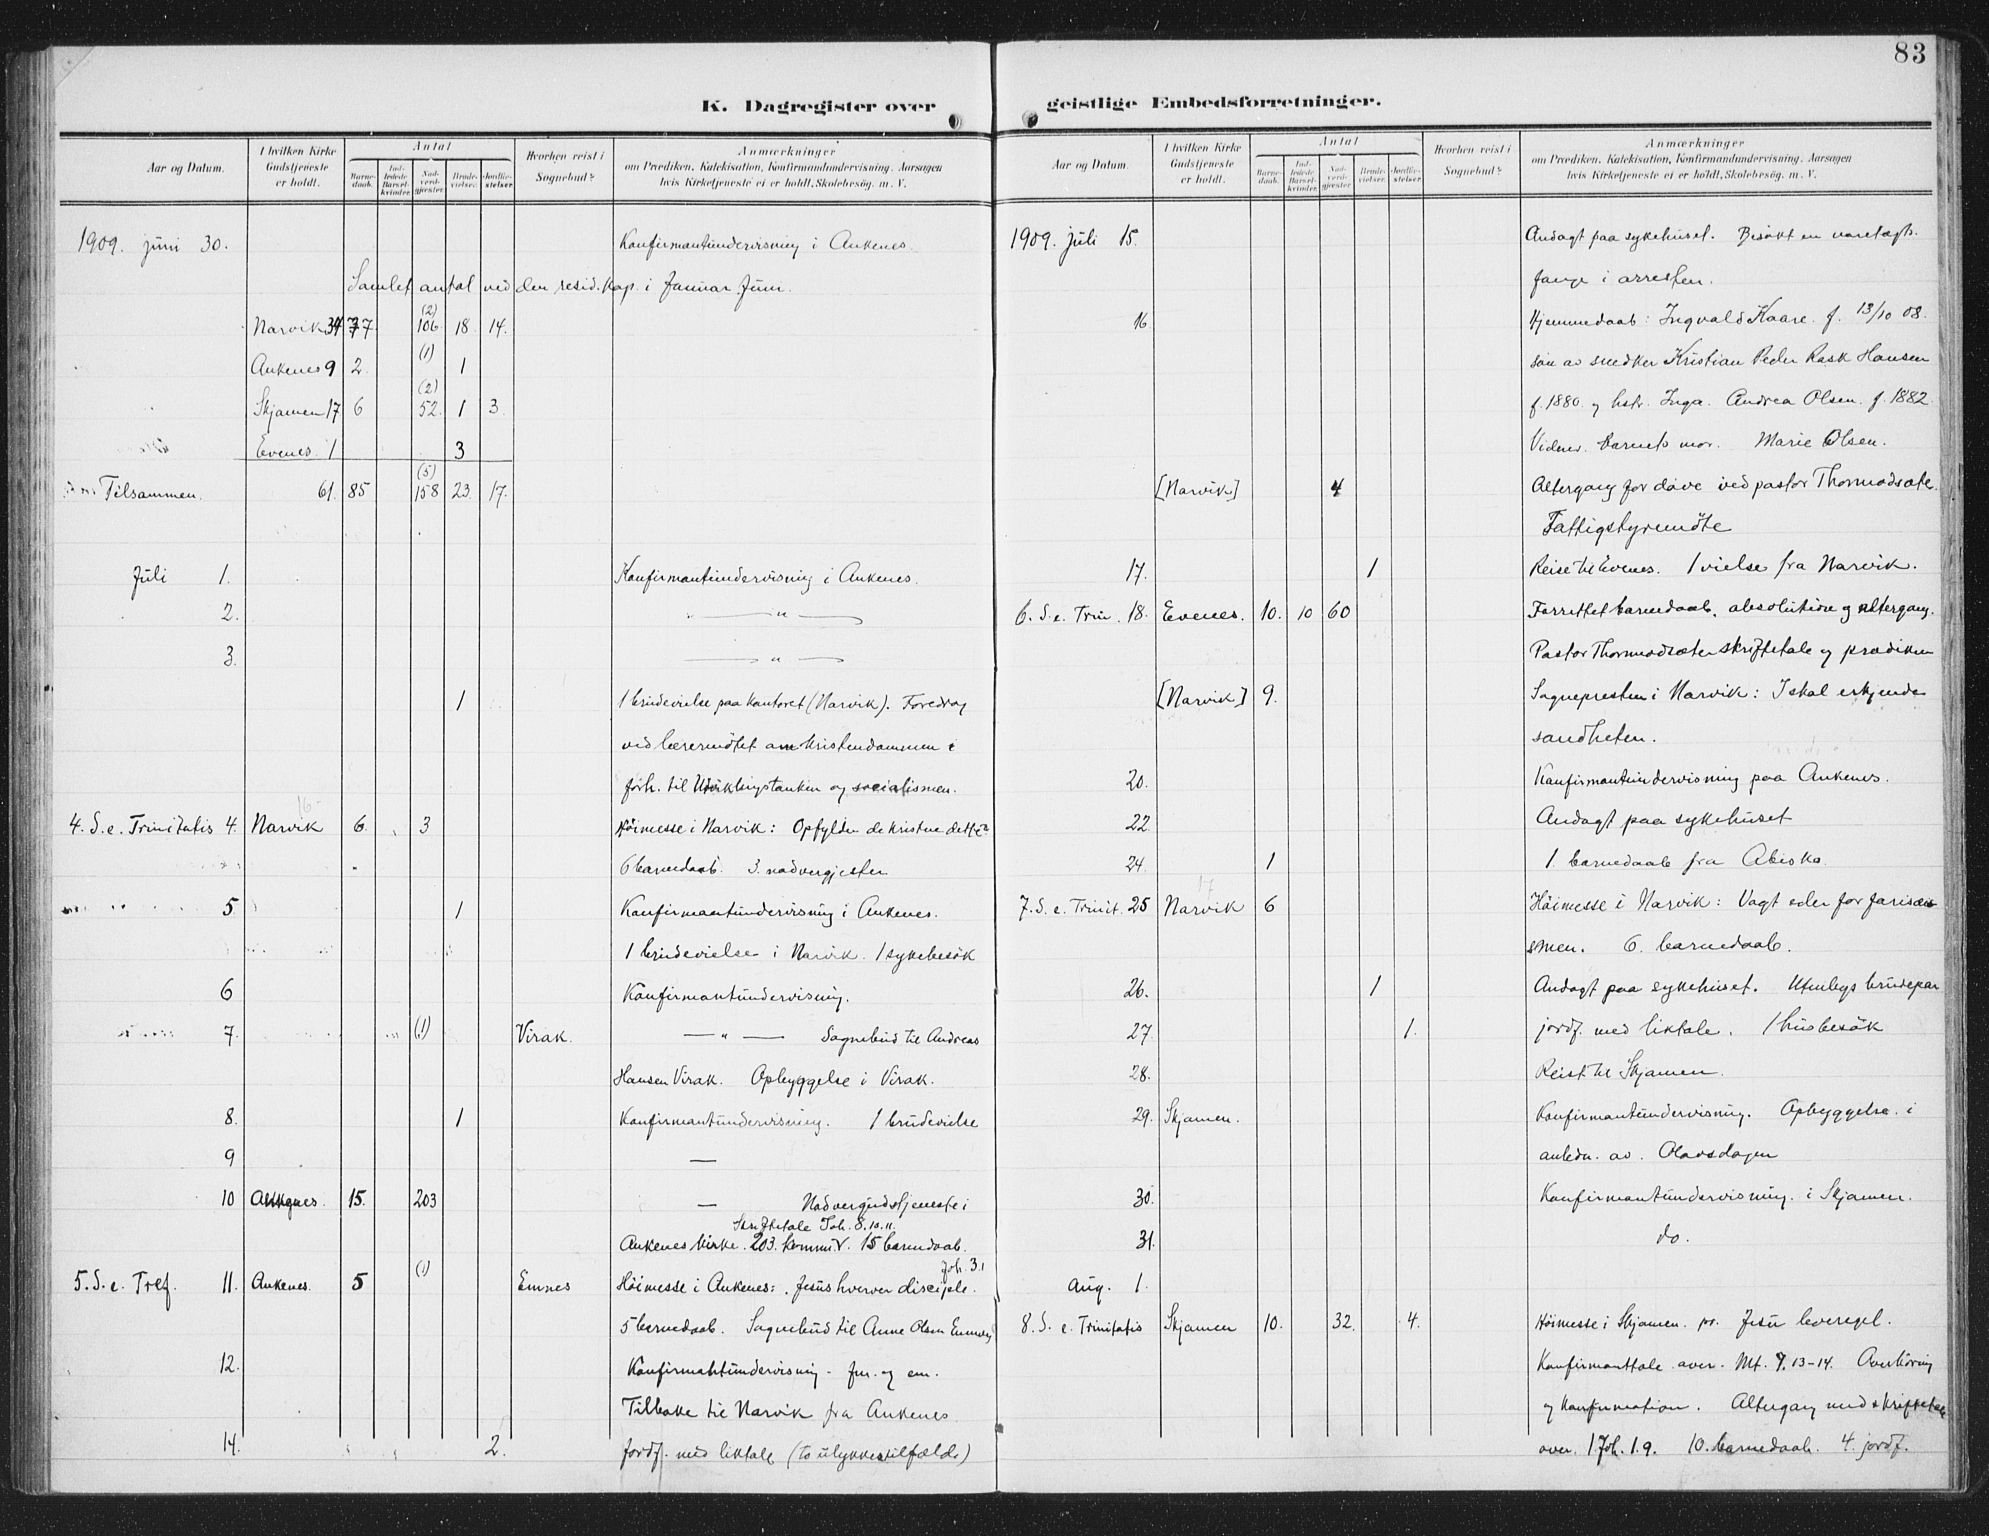 83
K. Dagregister over geistlige Embedsforretninger.
Aar og Datum. I hvilken Kirke Gudstjeneste er holdt. Antal Barnedaab. Indledede Barselkvinder. Nadverdgjester Brudevielser. Jordfæstelser Hvorhen reist i Sognebud? Anmærkninger
om Prædiken, Katekisation, Konfirmandundervisning, Aarsagen
hvis Kirketjeneste ei er holdt, Skolebesøg. m. V.
1909. juni 30. Konfirmantundervisning i Ankenes.
Samlet antal ved den resid. kap. i Januar-Juni.
Narvik 34 77 (2) 106 18. 14.
Ankenes 9 2 (1) 1
Skjomen 17 6 (2) 52. 1 3.
Evenes. 1 3
Tilsammen. 61. 85 (5) 158 23. 17.
Juli 1. Konfirmantundervisning i Ankenes.
2. — " —
3. — " —
1 1 brudevielse paa kontoret (Narvik). Foredrag
ved lærermøtet om kristendommen i
forh. til Utviklingstanken og socialismen.
4. S. e. Trinitatis 4. Narvik 16 6. 3 Höimesse i Narvik: Opfylder de kristne dette?
6 barnedaab. 3. nadvergjester
5 1 Konfirmantundervisning i Ankenes.
1 brudevielse i Narvik. 1 sykebesök
6 Konfirmantundervisning.
7. (1) Virak. — " — Sognebud til Andreas
Hansen Virak. Opbyggelse i Virak.
8. 1 Konfirmantundervisning. 1 brudevielse
9 —
10 Ankenes. 15. 203 — Nadvergudstjeneste i
Skriftetale Joh. 8. 10. 11.
Ankenes kirke. 203. kommu. 15 barnedaab.
5. S. e. Tref. 11. Ankenes. 5 (1) Emnes Höimesse i Ankenes: Jesus hverver disciple. Joh. 3.1
5 barnedaab. Sognebud til Anne Olsen Emnes
12. Konfirmantundervisning - fm. og em.
Tilbake til Narvik fra Ankenes
14. 2. jordf. med liktale (to ulykkestilfælde)
Aar og Datum. I hvilken Kirke Gudstjeneste er holdt. Antal Barnedaab. Indledede Barselkvinder. Nadverdgjester Brudevielser. Jordfæstelser Hvorhen reist i Sognebud? Anmærkninger
om Prædiken, Katekisation, Konfirmandundervisning, Aarsagen
hvis Kirketjeneste ei er holdt, Skolebesøg. m. V.
1909. juli 15. Andagt paa sykehuset. Besökt en varetægts-
fange i arresten.
16 Hjemmedaab: Ingvald Kaare f. 13/10 08.
sön av snedker Kristian Peder Rask Hansen
f. 1880. og hstr. Inga Andrea Olsen f. 1882.
Vidner barnets mor. Marie Olsen.
[Narvik] 4 Altergang for døve ved pastor Thormodsæter.
Fattigstyremöte
17. 1 Reise til Evenes. 1 vielse fra Narvik.
6. S. e. Trin. 18. Evenes. 10. 10 60 Forrettet barnedaab, absolution og altergang.
Pastor Thormodsæter skriftetale og prædiken
[Narvik] 9. Sognepresten i Narvik: I skal erkjende
sandheten.
20. Konfirmantundervisning paa Ankenes.
22. Andagt paa sykehuset
24. 1 1. barnedaab fra Abisko.
7. S. e. Trinit. 25 Narvik 17 6 Höimesse i Narvik: Vogt eder for farisæis-
men. 6. barnedaab.
26. 1 Andagt paa sykehuset. Utenbys brudepar
27. 1. jordf. med liktale. 1 husbesök
28. Reist til Skjomen.
29. Skjomen. Konfirmantundervisning. Opbyggelse i
anledn. av Olavsdagen
30. Konfirmantundervisning i Skjomen.
31. do.
Aug. 1.
8. S. e. Trinitatis Skjomen 10. 32. 4. Höimesse i Skjomen. pr. Jesu leveregel.
Konfirmanttale over Mt. 7. 13-14. Overhöring
og konfirmation. Altergang med skriftetale
over 1. Joh. 1. 9. 10. barnedaab. 4. jordf.